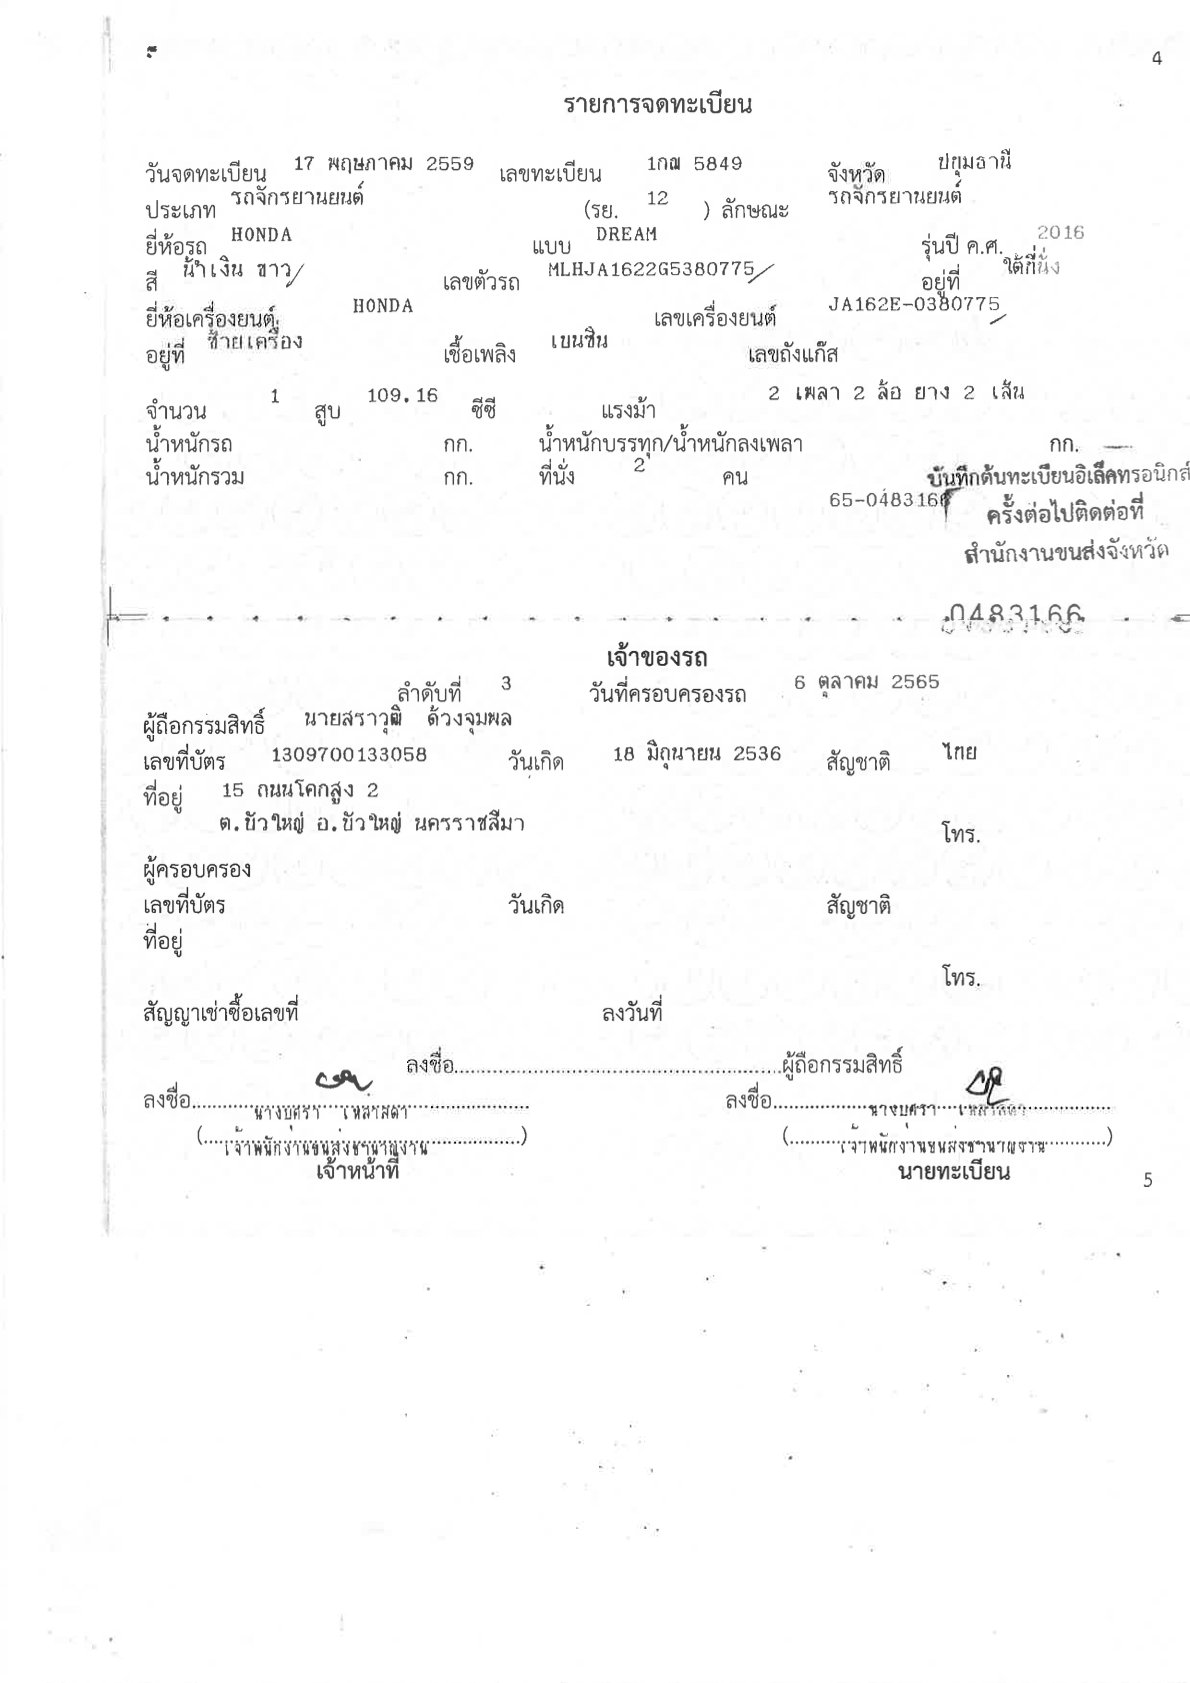 4
รายการจดทะเบียน
วันจดทะเบียน 17 พฤษภาคม 2559 เลขทะเบียน 1กณ 5849 จังหวัด ปทุมธานี
ประเภท รถจักรยานยนต์ (รย. 12 ) ลักษณะ รถจักรยานยนต์
ยี่ห้อรถ HONDA แบบ DREAM รุ่นปี ค.ศ. 2016
สี น้ำเงิน ขาว เลขตัวรถ MLHJA1622G5380775 อยู่ที่ ใต้ที่นั่ง
ยี่ห้อเครื่องยนต์ HONDA เลขเครื่องยนต์ JA162E-0380775
อยู่ที่ ซ้ายเครื่อง เชื้อเพลิง เบนซิน เลขถังแก๊ส
จำนวน 1 สูบ 109.16 ซีซี แรงม้า 2 เพลา 2 ล้อ ยาง 2 เส้น
น้ำหนักรถ กก. น้ำหนักบรรทุก/น้ำหนักลงเพลา กก.
น้ำหนักรวม กก. ที่นั่ง 2 คน บันทึกต้นทะเบียนอิเล็คทรอนิกส์
65-0483166 ครั้งต่อไปติดต่อที่
สำนักงานขนส่งจังหวัด
0483166
เจ้าของรถ
ลำดับที่ 3 วันที่ครอบครองรถ 6 ตุลาคม 2565
ผู้ถือกรรมสิทธิ์ นายสราวุฒิ ด้วงจุมพล
เลขที่บัตร 1309700133058 วันเกิด 18 มิถุนายน 2536 สัญชาติ ไทย
ที่อยู่ 15 ถนนโคกสูง 2
ต.บัวใหญ่ อ.บัวใหญ่ นครราชสีมา
โทร.
ผู้ครอบครอง
เลขที่บัตร วันเกิด สัญชาติ
ที่อยู่
โทร.
สัญญาเช่าซื้อเลขที่ ลงวันที่
ลงชื่อ....................ผู้ถือกรรมสิทธิ์
ลงชื่อ....................ลงชื่อ....................
(เจ้าพนักงานขนส่งชำนาญงาน) (เจ้าพนักงานขนส่งชำนาญงาน)
เจ้าหน้าที่ นายทะเบียน
5